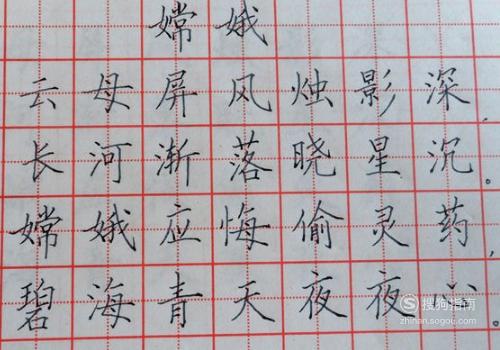 嫦娥
云母屏风烛影深,
长河渐落晓星沉。
嫦娥应悔偷灵药,
碧海青天夜夜心。
搜狗指南
zhinan.sogou.com